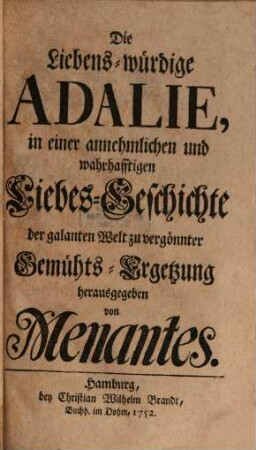 Die
Liebens-würdige
ADALIE,
in einer annehmlichen und
wahrhafftigen
Liebes-Geschichte
der galanten Welt zu vergönnter
Gemühts-Ergetzung
herausgegeben
von
Menantes.
Hamburg,
bey Christian Wilhelm Brandt,
Buchh. im Dohm, 1752.